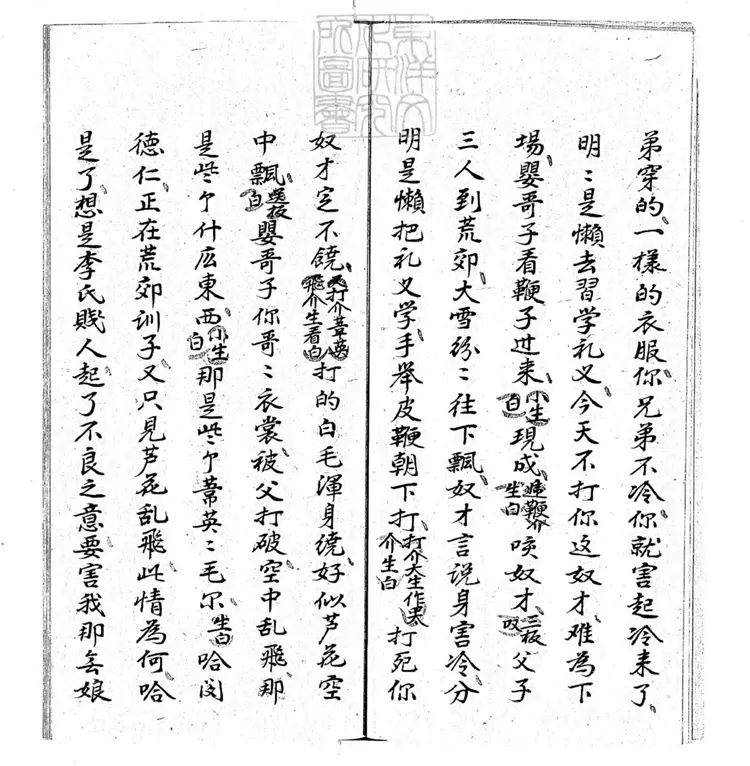 東洋文
化研究
所圖書
弟穿的一樣的衣服你兄弟不冷你就害起冷来了
明〻是懶去習学礼义今天不打你这奴才难為下
場嬰哥子看鞭子过来小生白現成遞鞭介生白唉奴才三板叹父子
三人到荒郊大雪纷〻往下飄奴才言说身害冷分
明是懶把礼义学手举皮鞭朝下打打介大生作介生白打死你
奴才定不饒打介葦英飛介生看白打的白毛渾身绕好似芦花空
中飄板白嬰哥子你哥〻衣裳被父打破空中乱飛那
是些个什庅東西小生白那是些个葦英〻毛尔生白哈闵
德仁正在荒郊训子又只見芦花乱飛此情為何哈
是了想是李氏贱人起了不良之意要害我那無娘